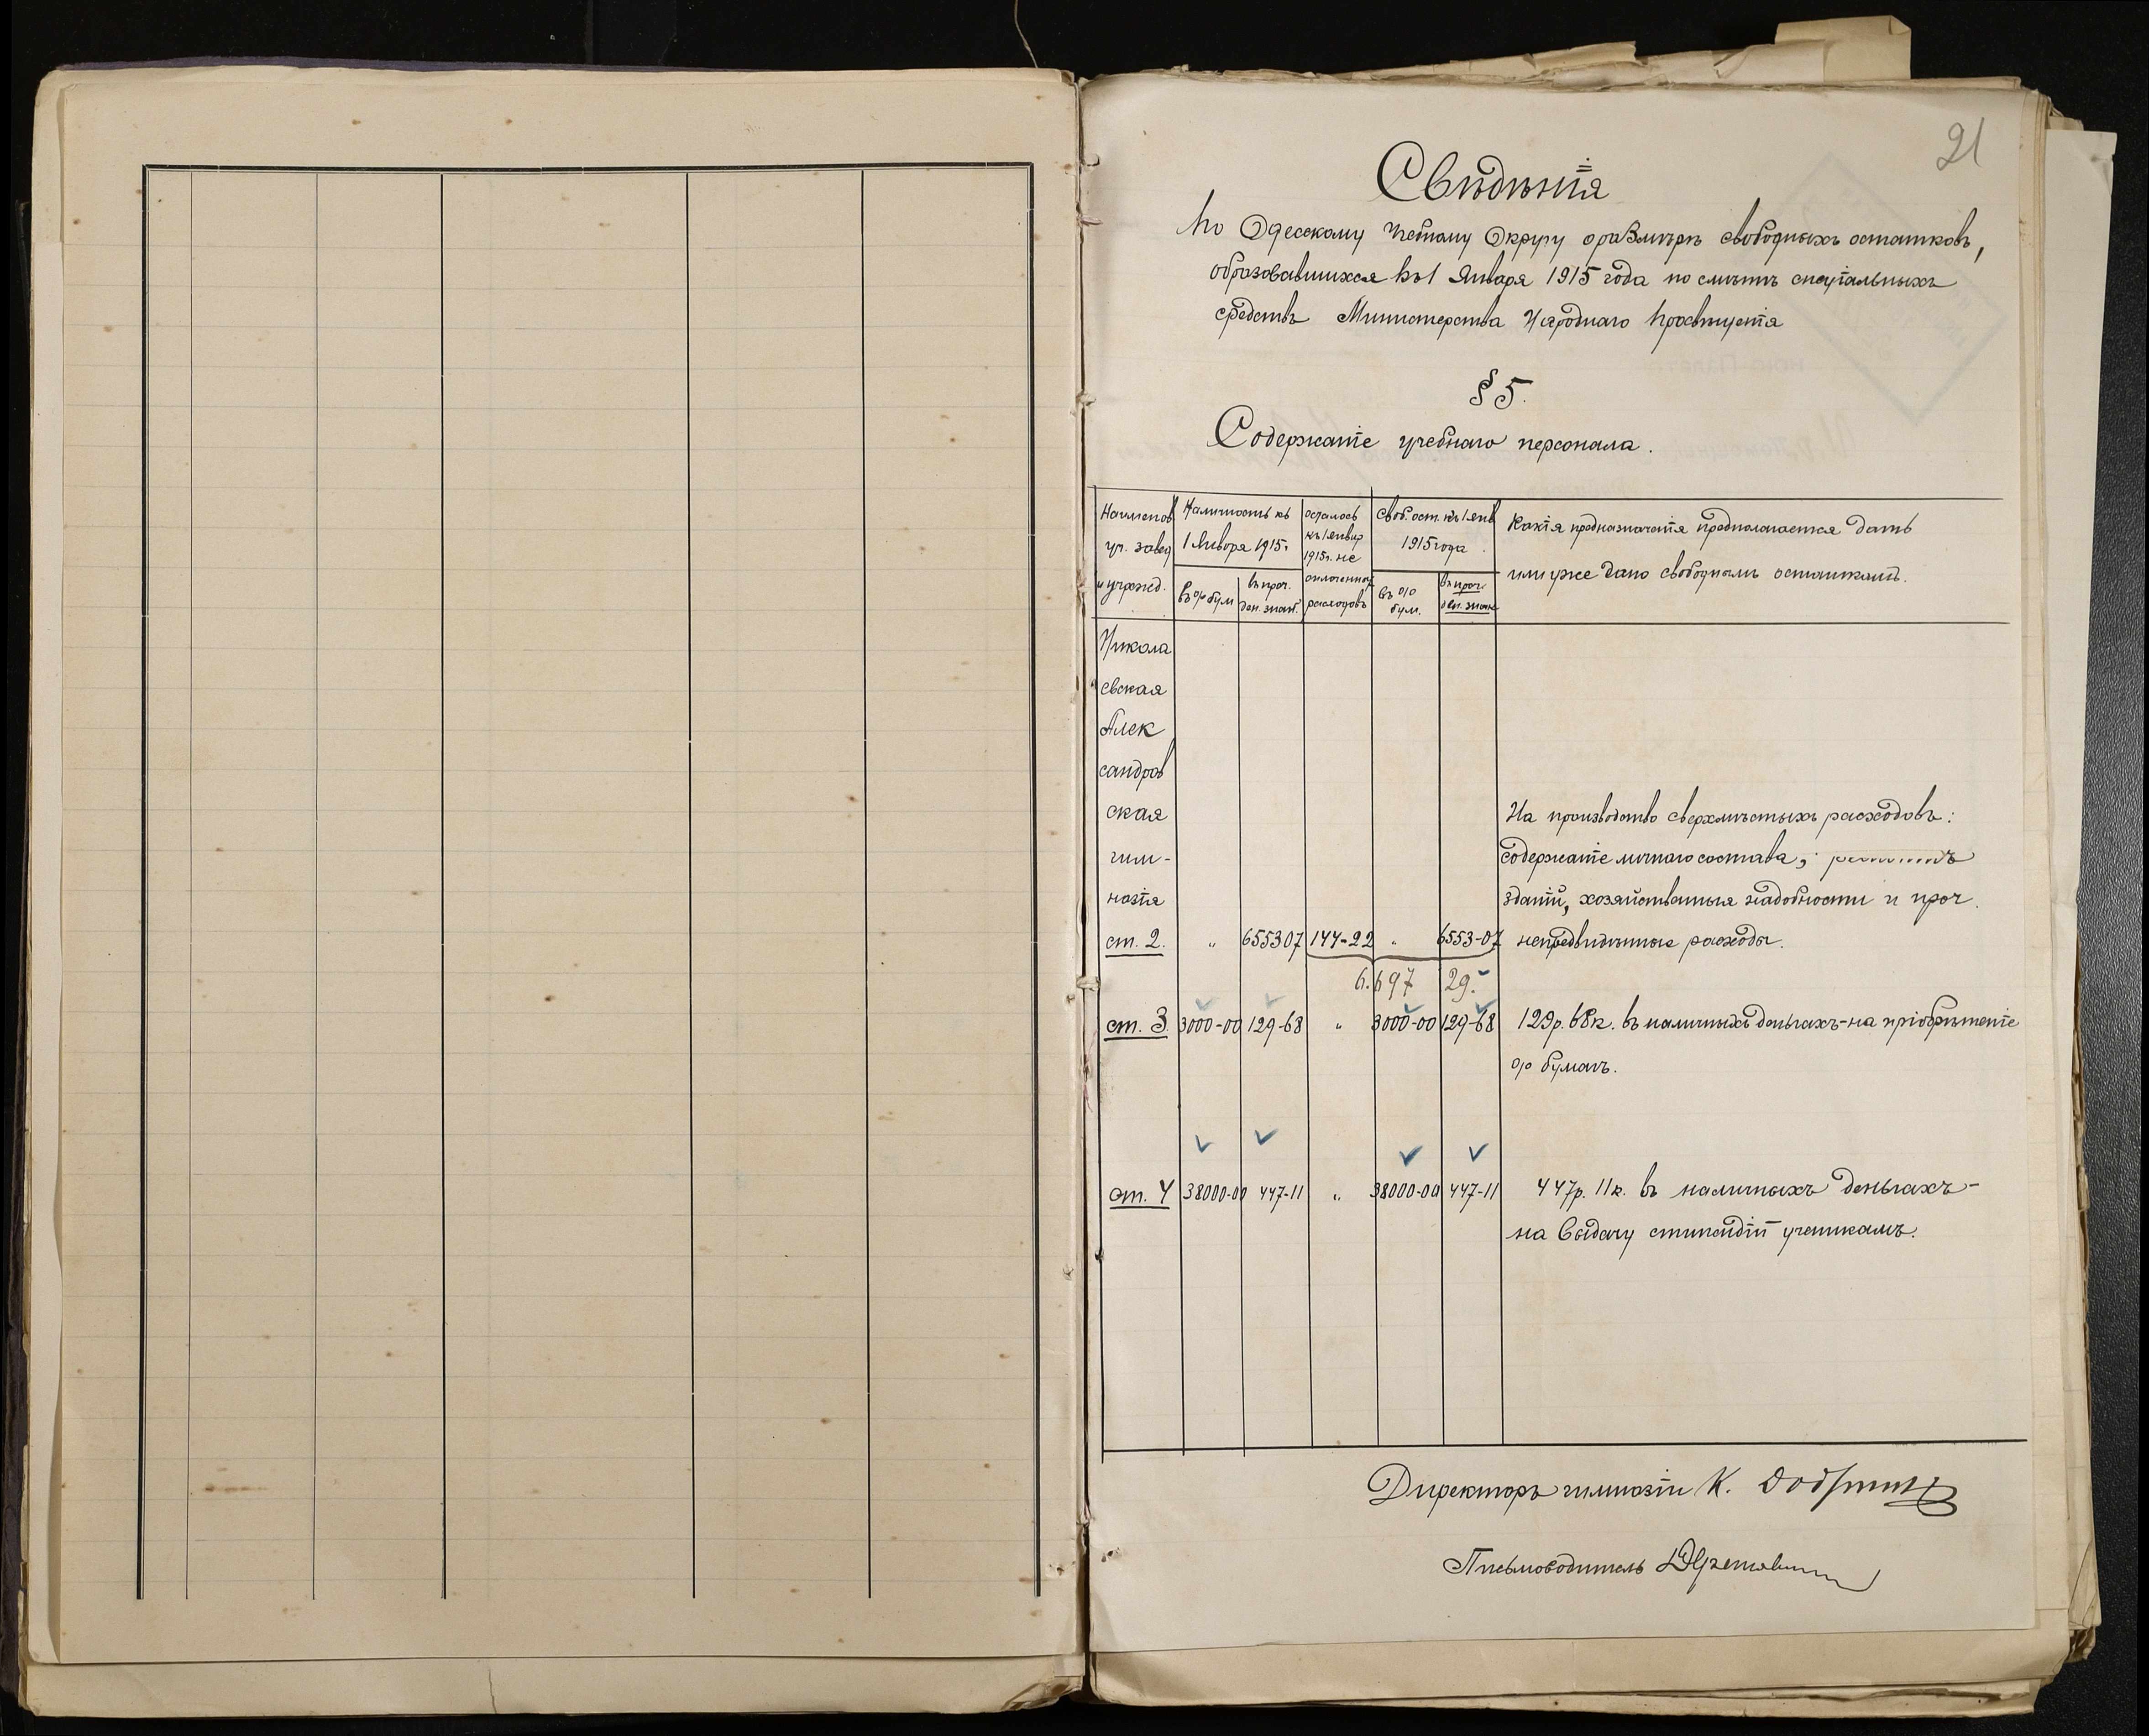 21
Свѣдѣнія
По Одесскому Учебному Округу о размѣрѣ свободныхъ остатковъ,
образовавшихся къ 1 Января 1915 года по смѣтѣ спеціальныхъ
средствъ Министерства Народнаго Просвѣщенія
§ 5.
Содержаніе учебнаго персонала.
Наименов. уч. завед. и учрежд.
Наличность къ 1 Января 1915 г.
въ % бум.
въ проч. ден. знак.
Осталось къ 1 январ 1915 г. не оплаченных расходовъ
Своб. ост. къ 1 янв. 1915 года.
въ % бум.
въ проч. ден. знак
Какія предназначенія предполагается дать
или уже дано свободнымъ остаткамъ.
Никола
евская
Алек
сандров
ская
гим-
назія
На производство сверхсмѣтныхъ расходовъ:
содержаніе личнаго состава, ремонтъ
зданій, хозяйственныя надобности и проч.
ст. 2. " 655307 144-22 " 6553-07 непредвидѣнные расходы.
6.697 29.
ст. 3. 3000-00 129-68 " 3000-00 129-68 129р. 68к. въ наличныхъ деньгахъ-на пріобрѣтеніе
% бумагъ.
ст. 4 38000-00 447-11 " 38000-00 447-11 447р. 11к. въ наличныхъ деньгахъ-
на выдачу стипендій ученикамъ.
Директоръ гимназіи К.
Письмоводитель